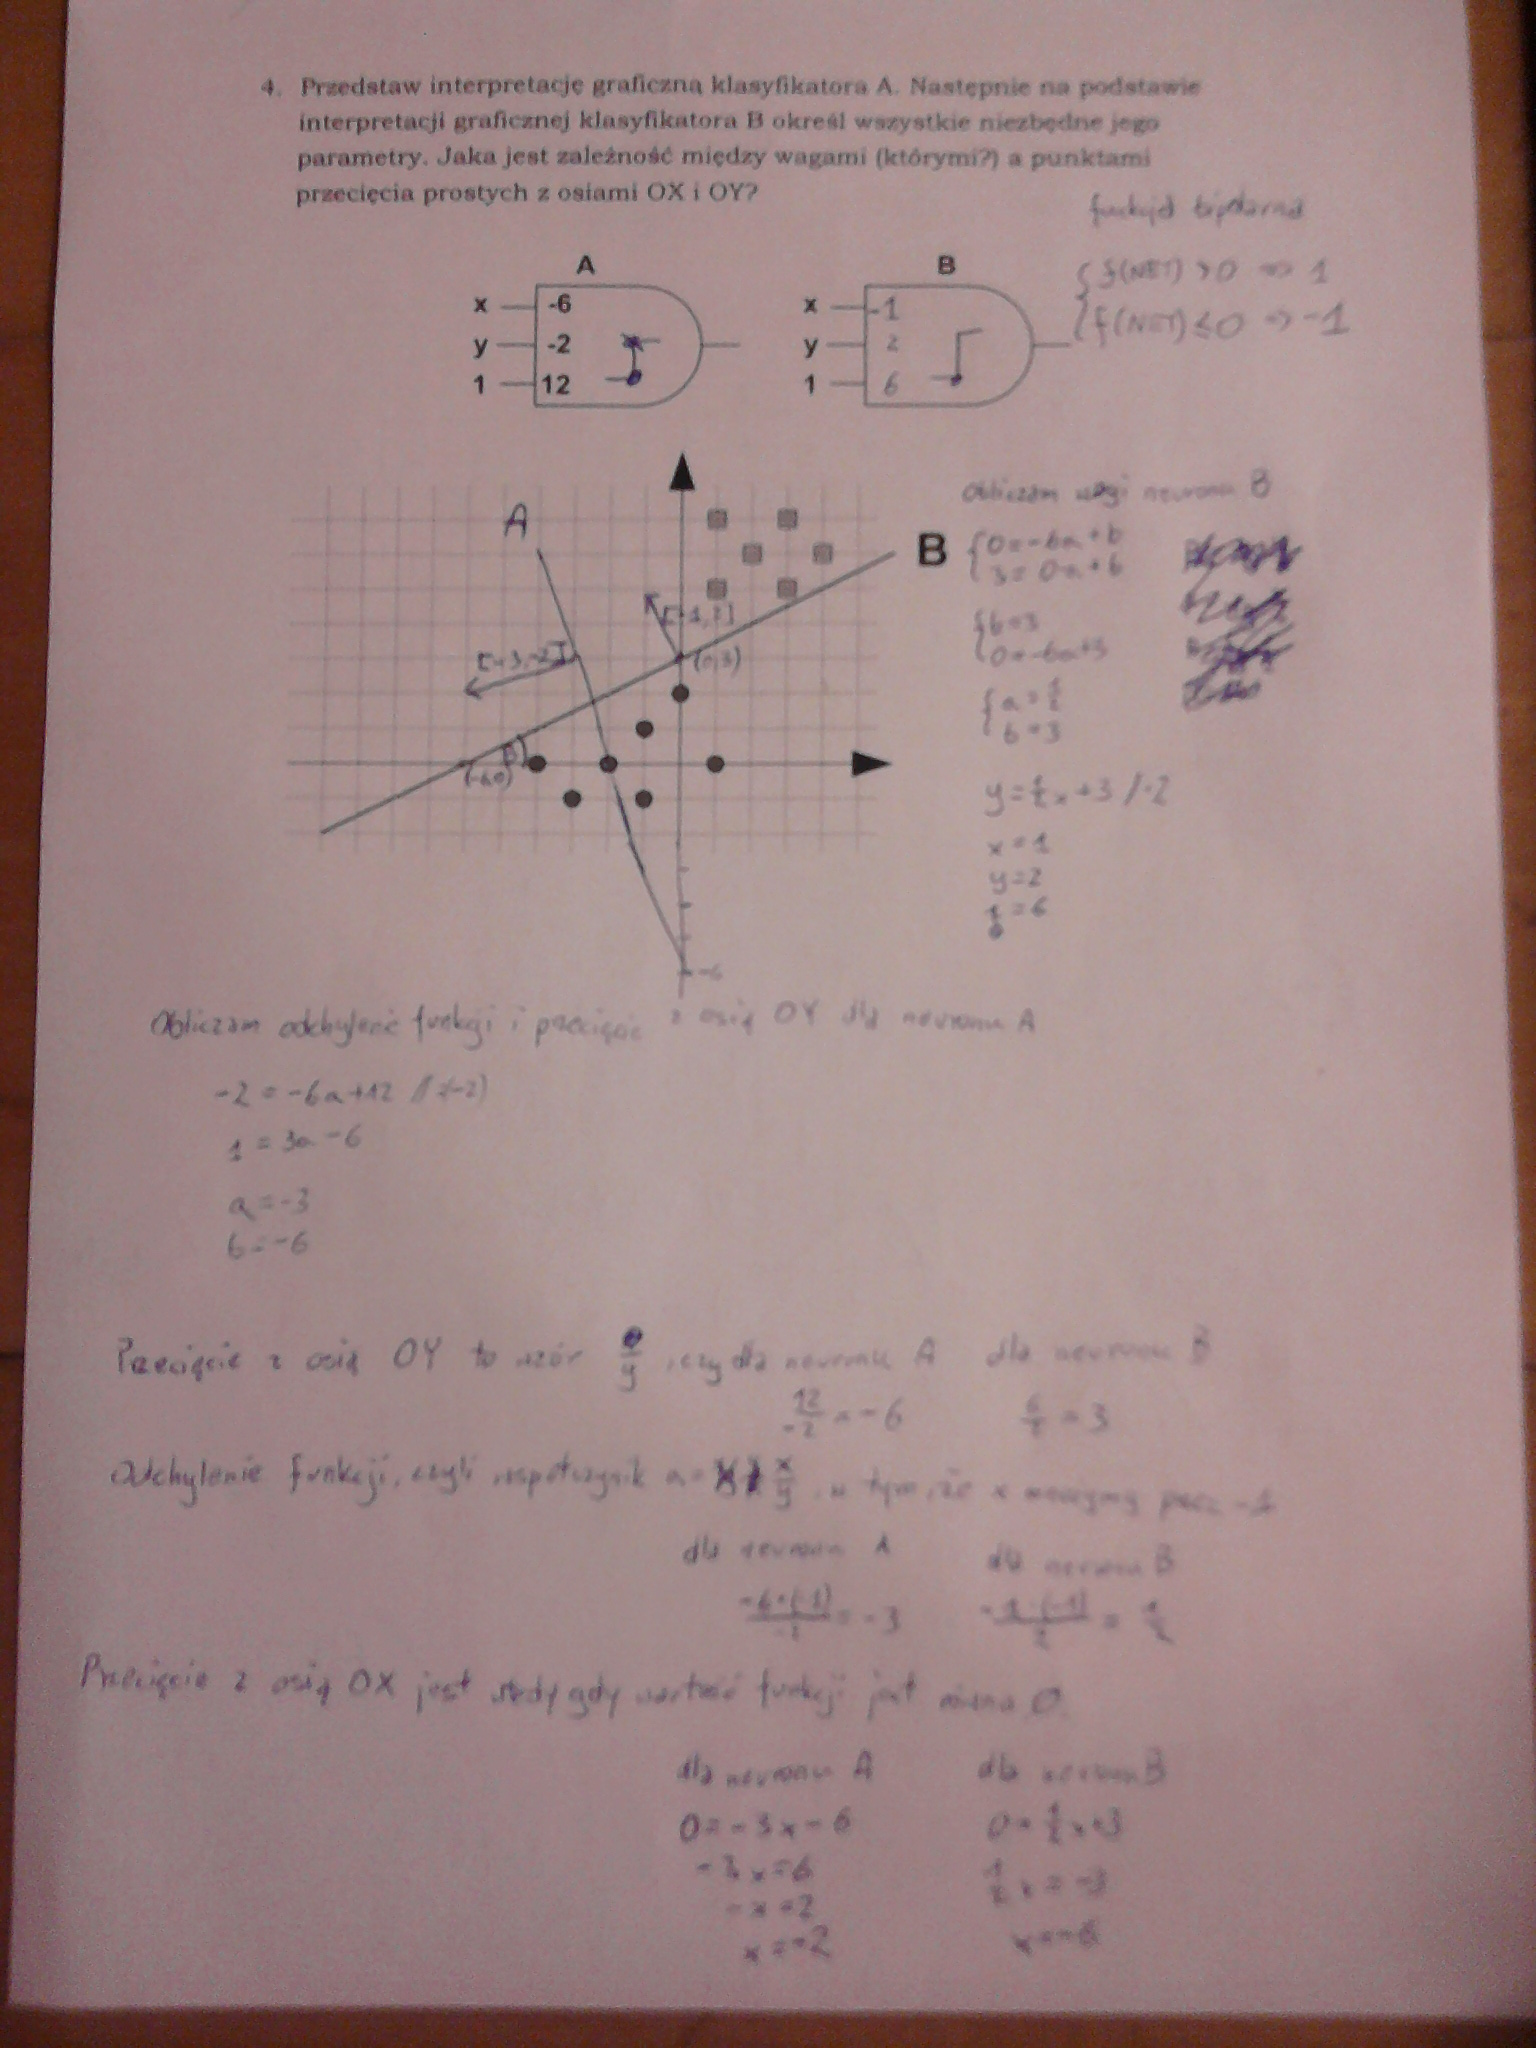 4. Przedstaw interpretację graficzną klasyfikatora A. Następnie na podstawie
interpretacji graficznej klasyfikatora B określ wszystkie niezbędne jego
parametry. Jaka jest zależność między wagami (którymi?) a punktami
przecięcia prostych z osiami OX i OY?
funkcja bipolarna
f(NET) > 0 => 1
f(NET) ≤ 0 => -1
A
x -6
y -2
1 12
B
x -1
y 2
1 6
A
B
[-1,2]
(0,3)
(-6,0)
-6
Obliczam wagi neuronu B
0=-6a+b
3=0a+b
b=3
0=-6a+3
a=1/2
b=3
y=1/2x+3 /·2
x=1
y=2
=6
Obliczam odchylenie funkcji i przecięcie z osią OY dla neuronu A
-2=-6a+12
1=3a-6
a=-3
b=-6
Przecięcie z osią OY to wzór dla neuronu A dla neuronu B
12/-2=-6
=3
Odchylenie funkcji, czyli współczynnik a= x/y, w tym, że x mnożymy przez -1
dla neuronu A dla neuronu B
-6·(-1)/-2=-3
-1·(-1)/2=1/2
Przecięcie z osią OX jest wtedy gdy wartość funkcji jest równa 0.
dla neuronu A dla neuronu B
0=-3x-6
-3x=6
-x=2
x=-2
0=1/2x+3
1/2x=-3
x=-6